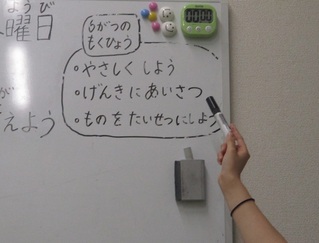 ようび
曜日
えよう
6がつの
もくひょう
・やさしく しよう
・げんきに あいさつ
・ものを たいせつにしよう
00:00